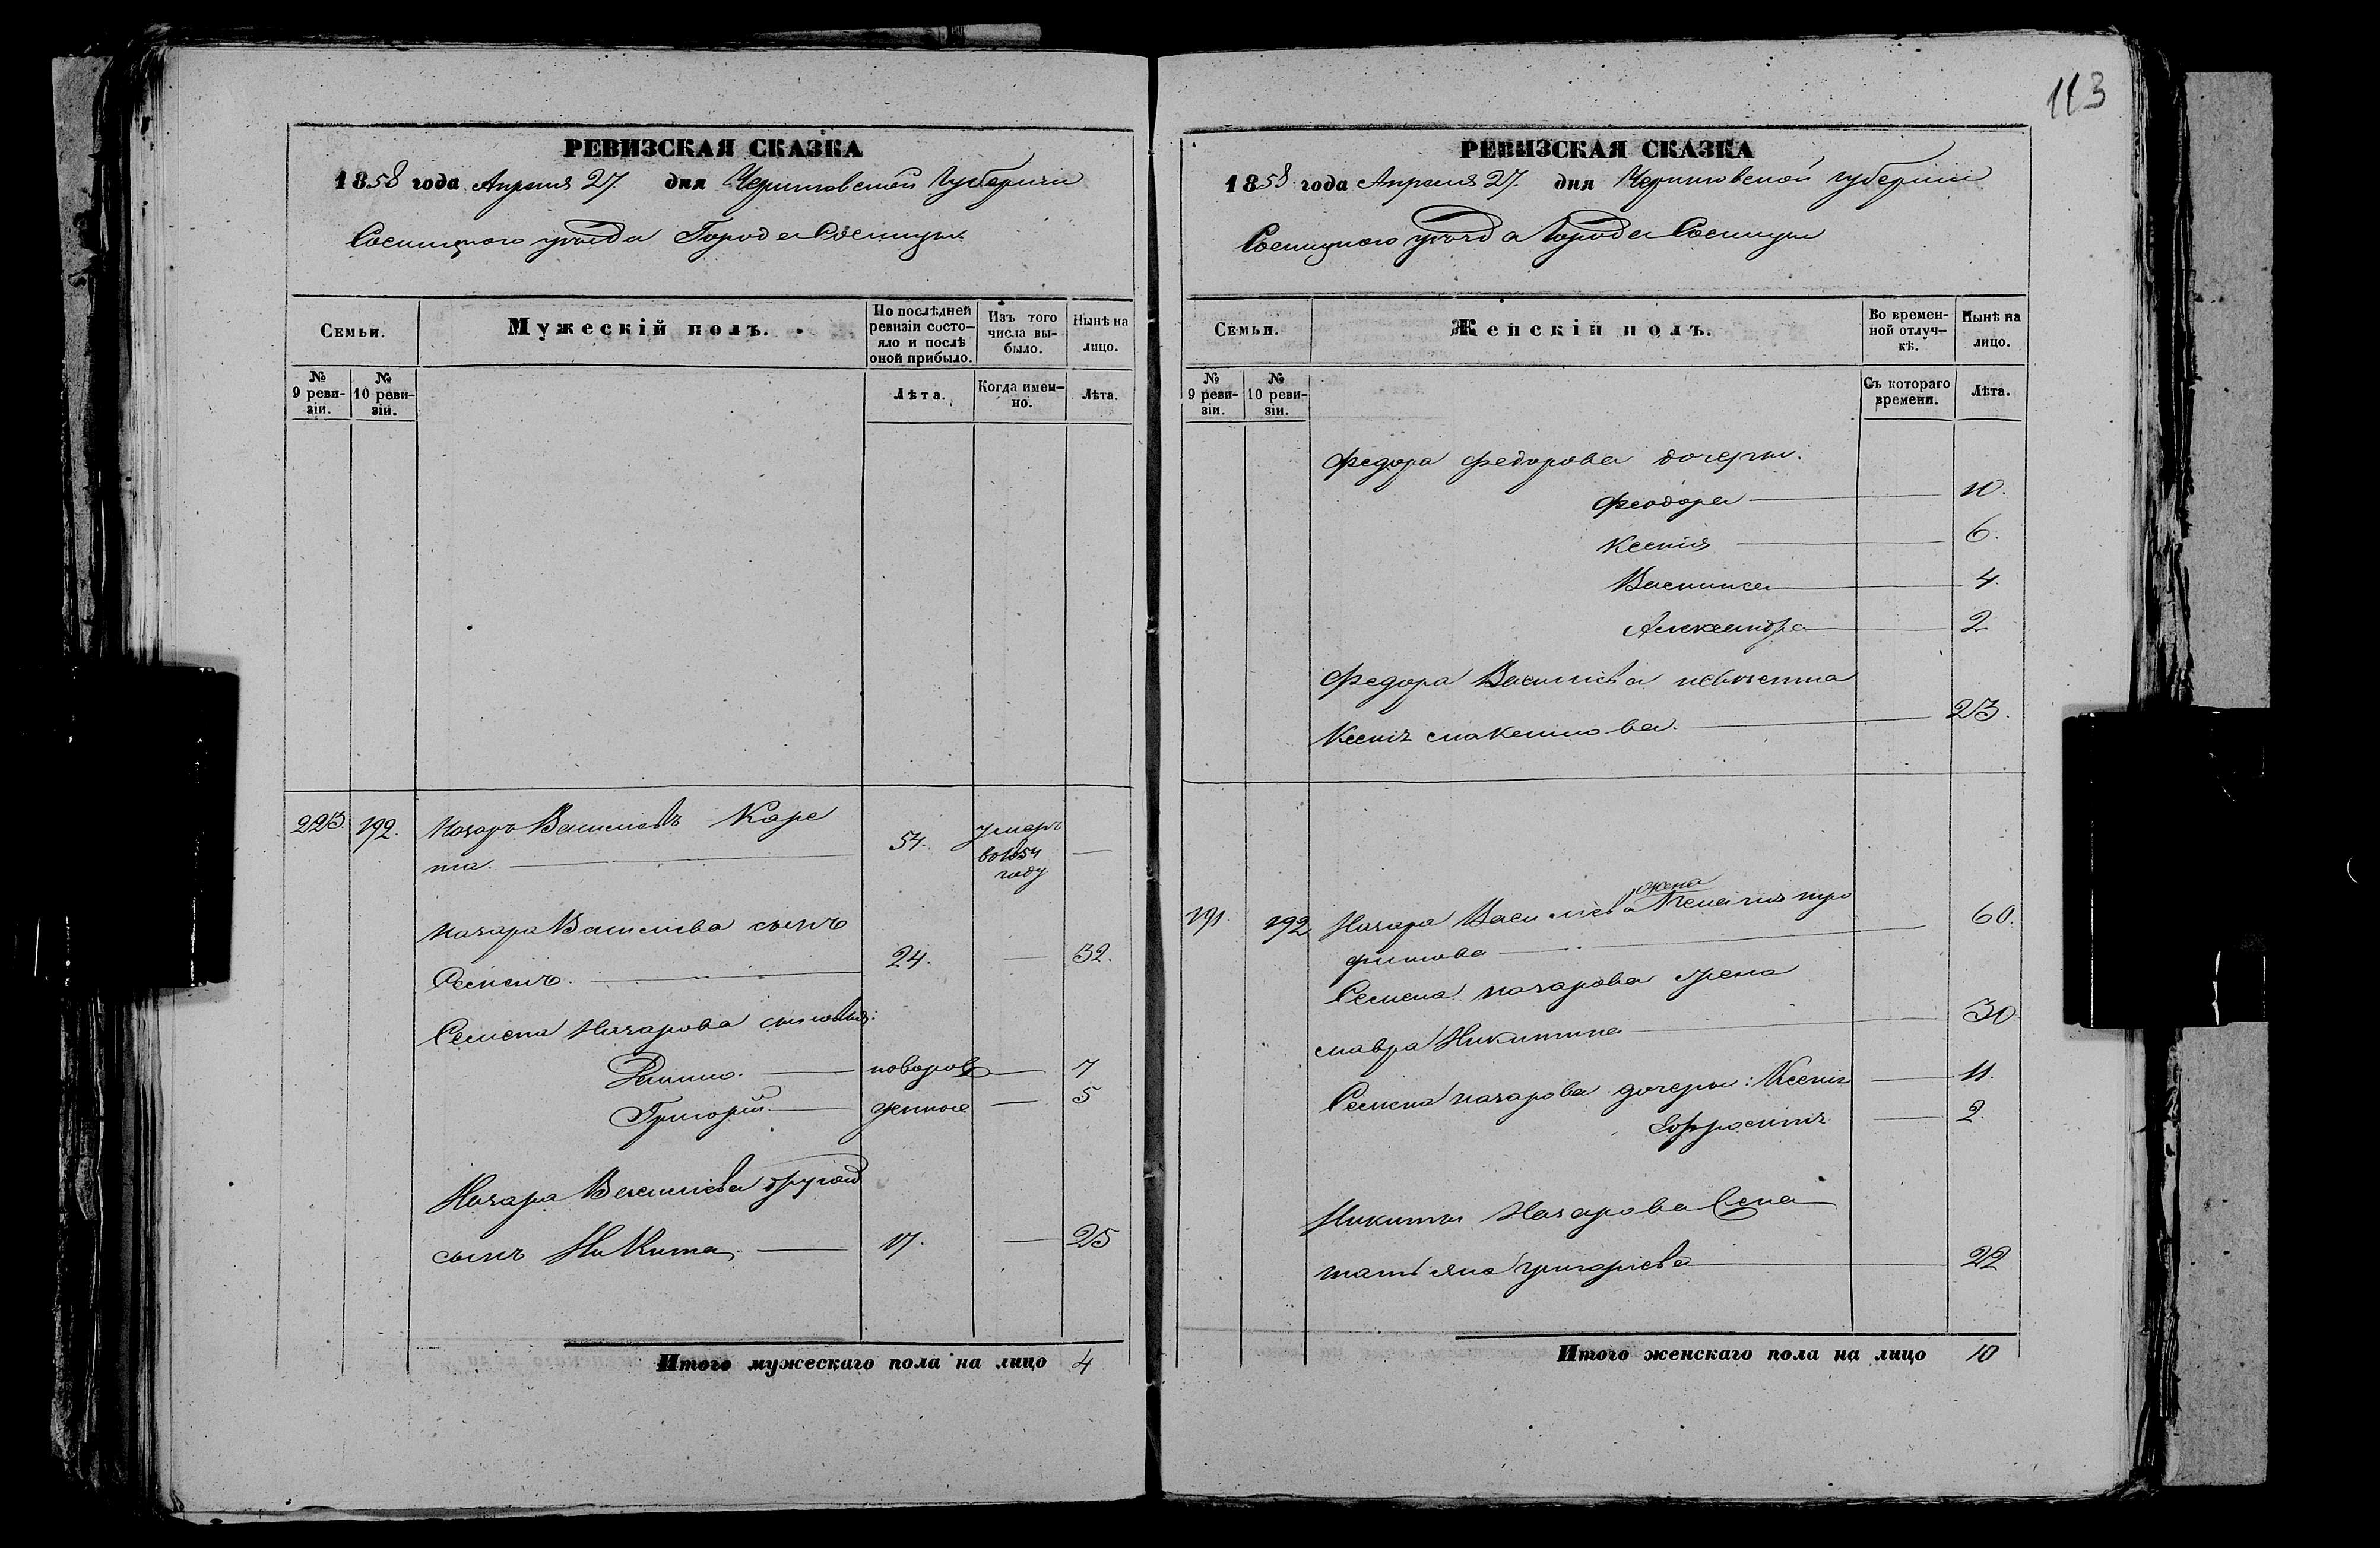 113
РЕВИЗСКАЯ СКАЗКА
1858 года Апреля 27. дня Черниговской Губерніи
Сосницкого уѣзда Города Сосницы
Семьи.
Мужескій полъ.
По послѣдней ревизіи состо-яло и послѣ оной прибыло.
Изъ того числа вы-было.
Нынѣ на лицо.
№ 9 реви-зіи.
№ 10 реви-зіи.
Лѣта.
Когда имен-но.
Лѣта.
223. 192. Назаръ Васильевъ Каре
та. 54. умеръ во 1854 году —
Назара Васильева сынъ
Семенъ. 24. — 32.
Семена Назарова сыновья:
новорож 7
Григорій денные — 5
Назара Васильева другой
сынъ Никита 17. — 25
Итого мужескаго пола на лицо 4
РЕВИЗСКАЯ СКАЗКА
1858 года Апреля 27. дня Черниговской губерніи
Сосницкого уѣзда Города Сосницы
Семьи.
Женскій полъ.
Во времен-ной отлуч-кѣ.
Нынѣ на лицо.
№ 9 реви-зіи.
№ 10 реви-зіи.
Съ котораго времени.
Лѣта.
Федора Федорова дочери:
Феодора 10.
Ксенія 6.
Василиса 4.
Александра 2
Федора Васильева невѣстка
Ксенія 23.
жена
191. 192 Назара Васильева Ксенія Тро
фимова 60.
Семена Назарова жена
Мавра Никитина 30
Семена Назарова дочери: Ксенія 11.
Ефросинія 2.
Никиты Назарова жена
Татьяна Григорьева 22
Итого женскаго пола на лицо 10